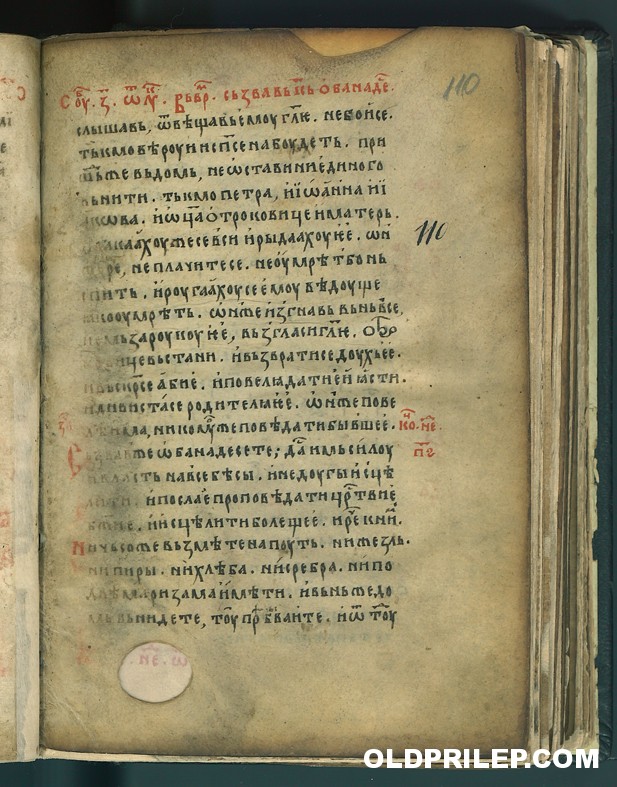 110
Соу҇. з҃. ѿ лꙋ҇. Въ вр҇. съзва въ іс҃ь ѡ҃ба на дє҇.
слышавь, ѿвѣщавь ємоу гл҃ѥ. нє боисє.
тькмо вѣроуи и сп҃сє на боудєть. при
шьжє вь домь, нє ѡстави ни єдиного
вьнити. тькмо пєтра, и іѡанна и і
ꙗкѡва. и ѡц҃а отроковицє и матєрь.
плакаахоу жє сє вси и рыдаахоу ѥє. ѡн
жє рє҇, нє плачитє сє. нє оумрѣть бо нь
спить. и роугаахоу сє ѥмоу вѣдоущє
ꙗко оумрѣть. ѡн жє изгнавь вьнь всє,
ємь за роукоу ѥє, вьзгласи гл҃ѥ. отро
ковицє вьстани. и вьзврати сє доухь ѥє.
и вьскр҃сє абиѥ. и повєлѣ дати єи ꙗсти.
и дивиста сє родитєлꙗ ѥє. ѡн жє повє
лѣ има, никомоужє повѣдати бывшєє. ко҇. нє҇.
Сьзвав жє ѡбанадєсєтє, да имь силоу
и власть на всє бѣсы. и нєдоугы исцѣ
лити. и посла ѥ проповѣдати цр҃твиє
бж҃иє. и исцѣлити болєщєє. и рє҇ кь ни҇.
Ничьсожє вьзмѣтє на поуть. ни жєзль.
ни пиры. ни хлѣба. ни срєбра. ни по
двѣма ризама имѣти. и вь ньжє до
мь вьнидєтє, тоу прѣбываитє. и ѿ тоу
110
OLDPRILEP.COM